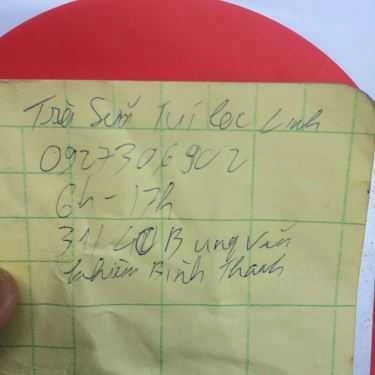 Trà Sữa Túi lọc Linh
0927306902
6h - 17h
31/40B ung Văn
khiêm Bình Thạnh